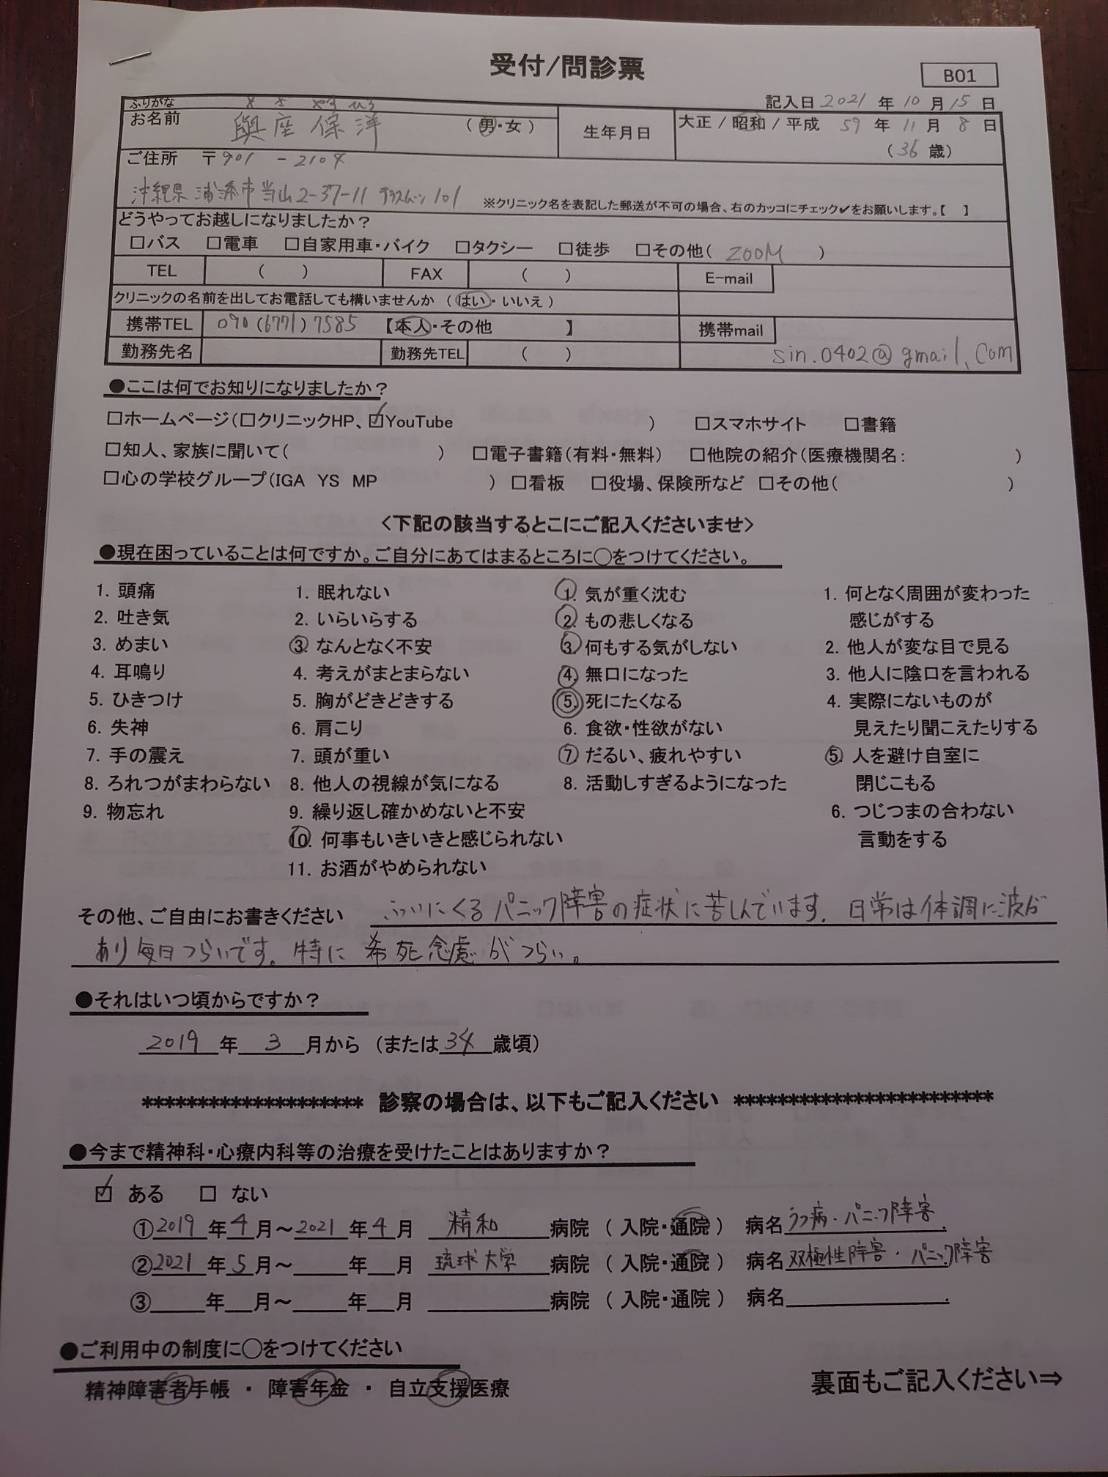 受付/問診票
B01
記入日 2021 年 10 月 15 日
ふりがな よ ざ やす ひろ
お名前 與座保洋 (男・女)
生年月日 大正 / 昭和 / 平成 59 年 11 月 8 日
(36 歳)
ご住所 〒901 - 2104
沖縄県浦添市当山2-37-11 101
※クリニック名を表記した郵送が不可の場合、右のカッコにチェック✔をお願いします。【 】
どうやってお越しになりましたか?
□バス □電車 □自家用車・バイク □タクシー □徒歩 □その他( ZOOM )
TEL ( ) FAX ( ) E-mail
クリニックの名前を出してお電話しても構いませんか (はい・いいえ)
携帯TEL 090 (6771) 7585 【本人・その他 】 携帯mail
勤務先名 勤務先TEL ( ) sin.0402@gmail.com
●ここは何でお知りになりましたか?
□ホームページ(□クリニックHP、☑YouTube ) □スマホサイト □書籍
□知人、家族に聞いて( ) □電子書籍(有料・無料) □他院の紹介(医療機関名: )
□心の学校グループ(IGA YS MP ) □看板 □役場、保険所など □その他( )
<下記の該当するとこにご記入くださいませ>
●現在困っていることは何ですか。ご自分にあてはまるところに○をつけてください。
1. 頭痛
2. 吐き気
3. めまい
4. 耳鳴り
5. ひきつけ
6. 失神
7. 手の震え
8. ろれつがまわらない
9. 物忘れ
1. 眠れない
2. いらいらする
③ なんとなく不安
4. 考えがまとまらない
5. 胸がどきどきする
6. 肩こり
7. 頭が重い
8. 他人の視線が気になる
9. 繰り返し確かめないと不安
⑩ 何事もいきいきと感じられない
11. お酒がやめられない
① 気が重く沈む
② もの悲しくなる
③ 何もする気がしない
④ 無口になった
⑤ 死にたくなる
6. 食欲・性欲がない
⑦ だるい、疲れやすい
8. 活動しすぎるようになった
1. 何となく周囲が変わった
感じがする
2. 他人が変な目で見る
3. 他人に陰口を言われる
4. 実際にないものが
見えたり聞こえたりする
⑤ 人を避け自室に
閉じこもる
6. つじつまの合わない
言動をする
その他、ご自由にお書きください ふいにくるパニック障害の症状に苦しんでいます。日常は体調に波が
あり毎日つらいです。特に希死念慮がつらい。
●それはいつ頃からですか?
2019 年 3 月から (または 34 歳頃)
********************* 診察の場合は、以下もご記入ください ************************
●今まで精神科・心療内科等の治療を受けたことはありますか?
☑ ある □ ない
①2019 年 4 月~2021 年 4 月 精和 病院 ( 入院・通院 ) 病名 うつ病・パニック障害
②2021 年 5 月~ 年 月 琉球大学 病院 ( 入院・通院 ) 病名 双極性障害・パニック障害
③ 年 月~ 年 月 病院 ( 入院・通院 ) 病名
●ご利用中の制度に○をつけてください
精神障害者手帳 ・ 障害年金 ・ 自立支援医療
裏面もご記入ください⇒